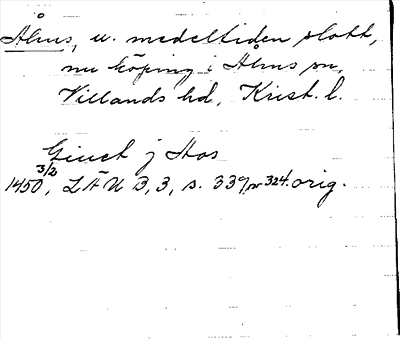 Åhus, u. medeltiden slott,
nu köping i Åhus sn,
Villands hd, Krist. l.
Giuet j Hos
1450 3/2, LÄU B, 3, s. 339, nr 324. orig.